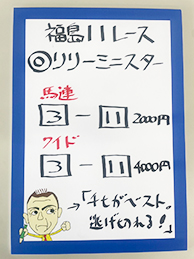 福島11レース
◎リリーミニスター
馬連
3 − 11 2000円
ワイド
3 − 11 4000円
→「千七がベスト。
逃げきれる!」